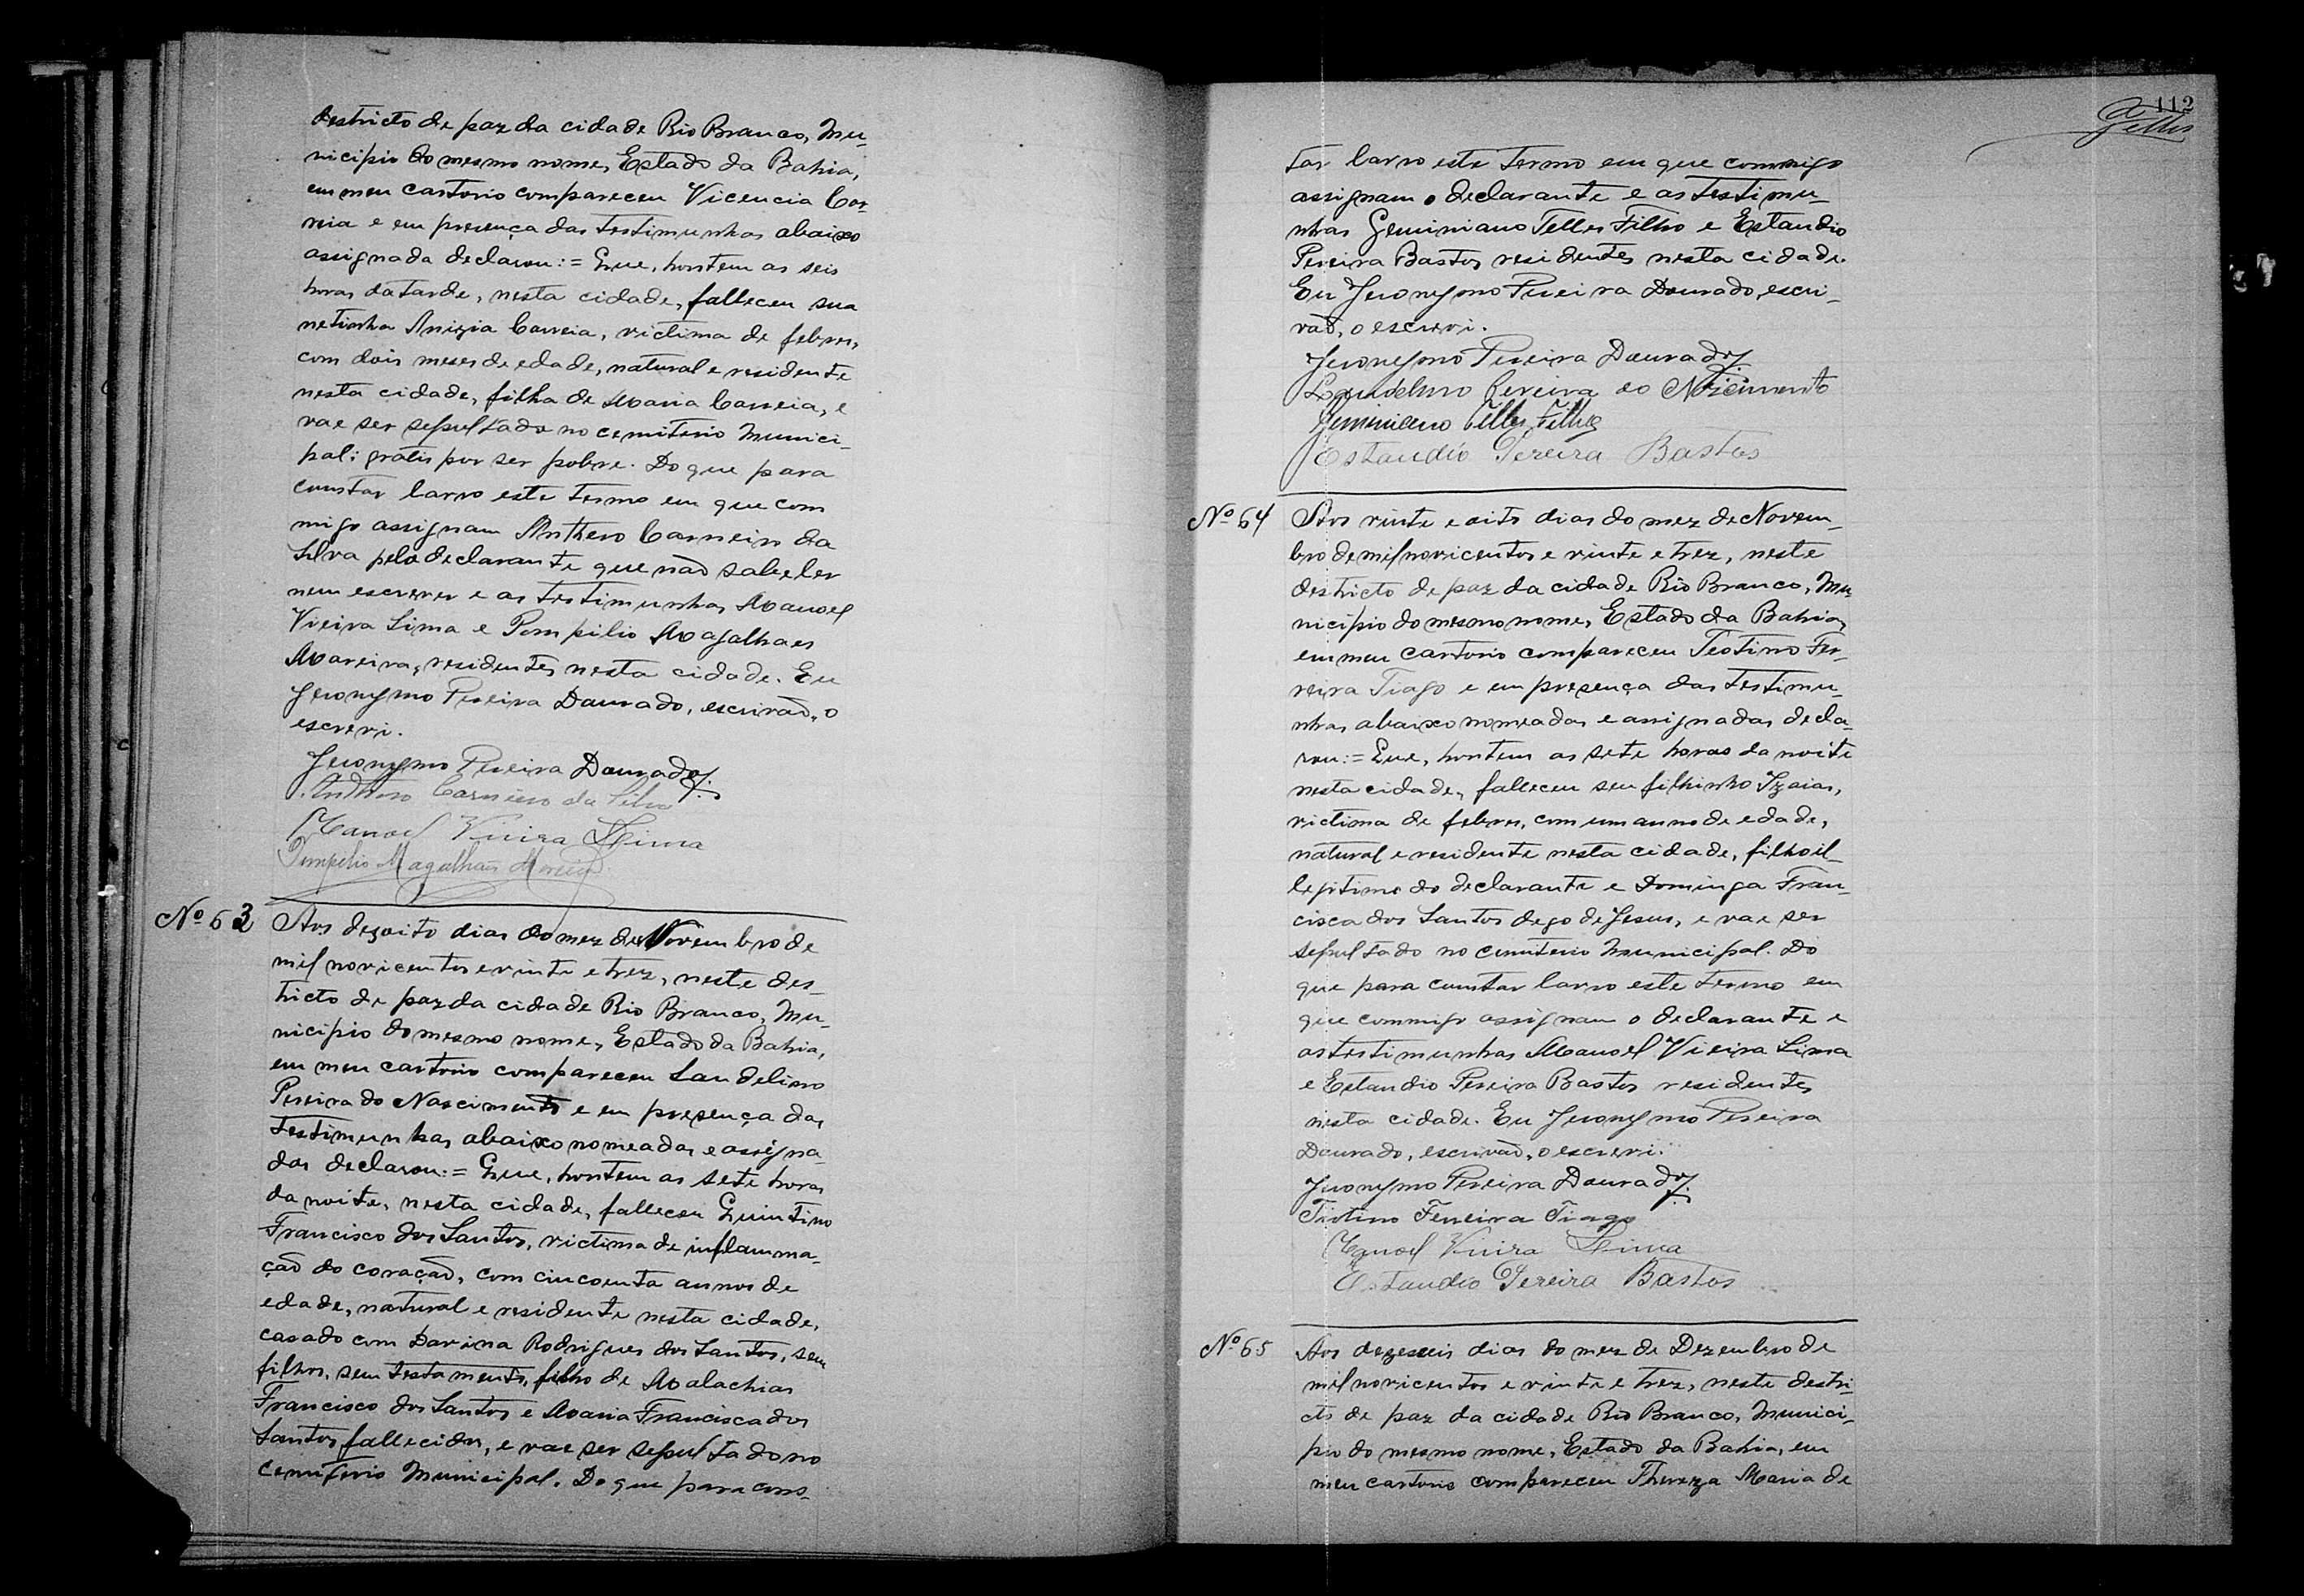 destricto de paz da cidade Rio Branco, Mu-
nicipio do mesmo nome, Estado da Bahia,
em meu cartorio compareceu Vicencia Cor-
reia e em presença das testimunhas abaixo
assignada declarou:= Que, hontem as seis
horas da tarde, nesta cidade, falleceu sua
netinha Anizia Correia, victima de febres,
com dois meses de edade, natural e residente
nesta cidade, filha de Maria Correia, e
vae ser sepultada no cemiterio Munici-
pal; gratis por ser pobre. Do que para
constar lavro este termo em que com
migo assignam Anthero Carneiro da
Silva pela declarante que não sabe ler
nem escrever e as testimunhas Manoel
Vieira Lima e Pompilio Magalhaes
Moreira, residentes nesta cidade. Eu
Jeronymo Pereira Dourado, escrivão, o
escrevi.
Jeronymo Pereira Dourado
Anthero Carneiro da Silva
Manoel Vieira Lima
Pompilio Magalhães Moreira
Nº 63 Aos dezoito dias do mez de Novembro de
mil novicentos e vinte e trez, neste des-
tricto de paz da cidade Rio Branco, Mu-
nicipio do mesmo nome, Estado da Bahia,
em meu cartorio compareceu Laudelino
Pereira do Nascimento e em presença das
testimunhas abaixo nomeadas e assigna-
das declarou:= Que, hontem as sete horas
da noite, nesta cidade, falleceu Quintino
Francisco dos Santos, victima de inflamma-
ção do coração, com cincoenta annos de
edade, natural e residente nesta cidade,
casado com Davina Rodrigues dos Santos, sem
filhos, sem testamento, filho de Malachias
Francisco dos Santos e Maria Francisca dos
Santos, fallecidos, e vae ser sepultado no
cemiterio Municipal. Do que para cons-
112
Telles
tar lavro este termo em que commigo
assignam o declarante e as testimu-
nhas Geminiano Telles Filho e Estaudio
Pereira Bastos residentes nesta cidade.
Eu Jeronymo Pereira Dourado, escri-
vão, o escrevi.
Jeronymo Pereira Dourado
Laudelino Pereira do Nascimento
Geminiano Telles Filho
Estaudio Pereira Bastos
Nº 64 Aos vinte e oito dias do mez de Novem-
bro de mil novicentos e vinte e trez, neste
destricto de paz da cidade Rio Branco, Mu-
nicipio do mesmo nome, Estado da Bahia,
em meu cartorio compareceu Teotino Fer-
reira Tiago e em presença das testimu-
nhas abaixo nomeadas e assignadas decla-
rou:= Que, hontem as sete horas da noite
nesta cidade, falleceu seu filhinho Izaias,
victima de febres, com um anno de edade,
natural e residente nesta cidade, filho il-
legitimo do declarante e Dominga Fran-
cisca dos Santos dego de Jesus, e vae ser
sepultado no cemiterio Municipal. Do
que para constar lavro este termo em
que commigo assignam o declarante e
as testimunhas Manoel Vieira Lima
e Estaudio Pereira Bastos residentes
nesta cidade. Eu Jeronymo Pereira
Dourado, escrivão, o escrevi.
Jeronymo Pereira Dourado
Tiotino Ferreira Tiago
Manoel Vieira Lima
Estaudio Pereira Bastos
Nº 65 Aos dezeseis dias do mez de Dezembro de
mil novicentos e vinte e trez, neste destri-
cto de paz da cidade Rio Branco, Munici-
pio do mesmo nome, Estado da Bahia, em
meu cartorio compareceu Thereza Maria de